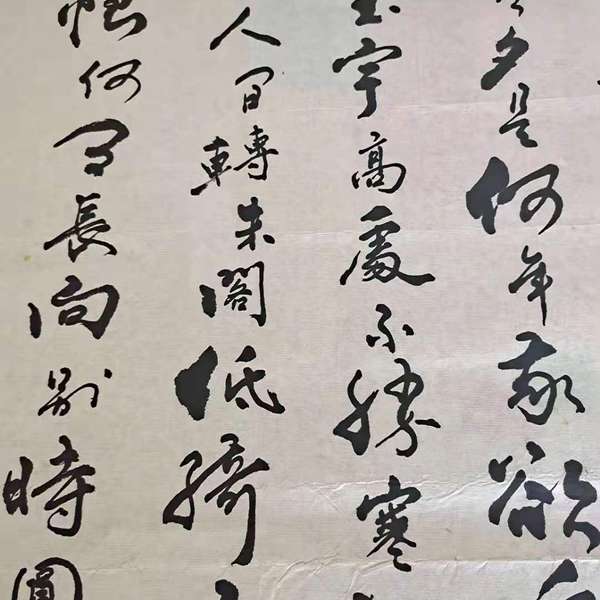 夕是何年我欲
宇高處不勝寒
人間轉朱閣低綺
恨何事長向別時圓